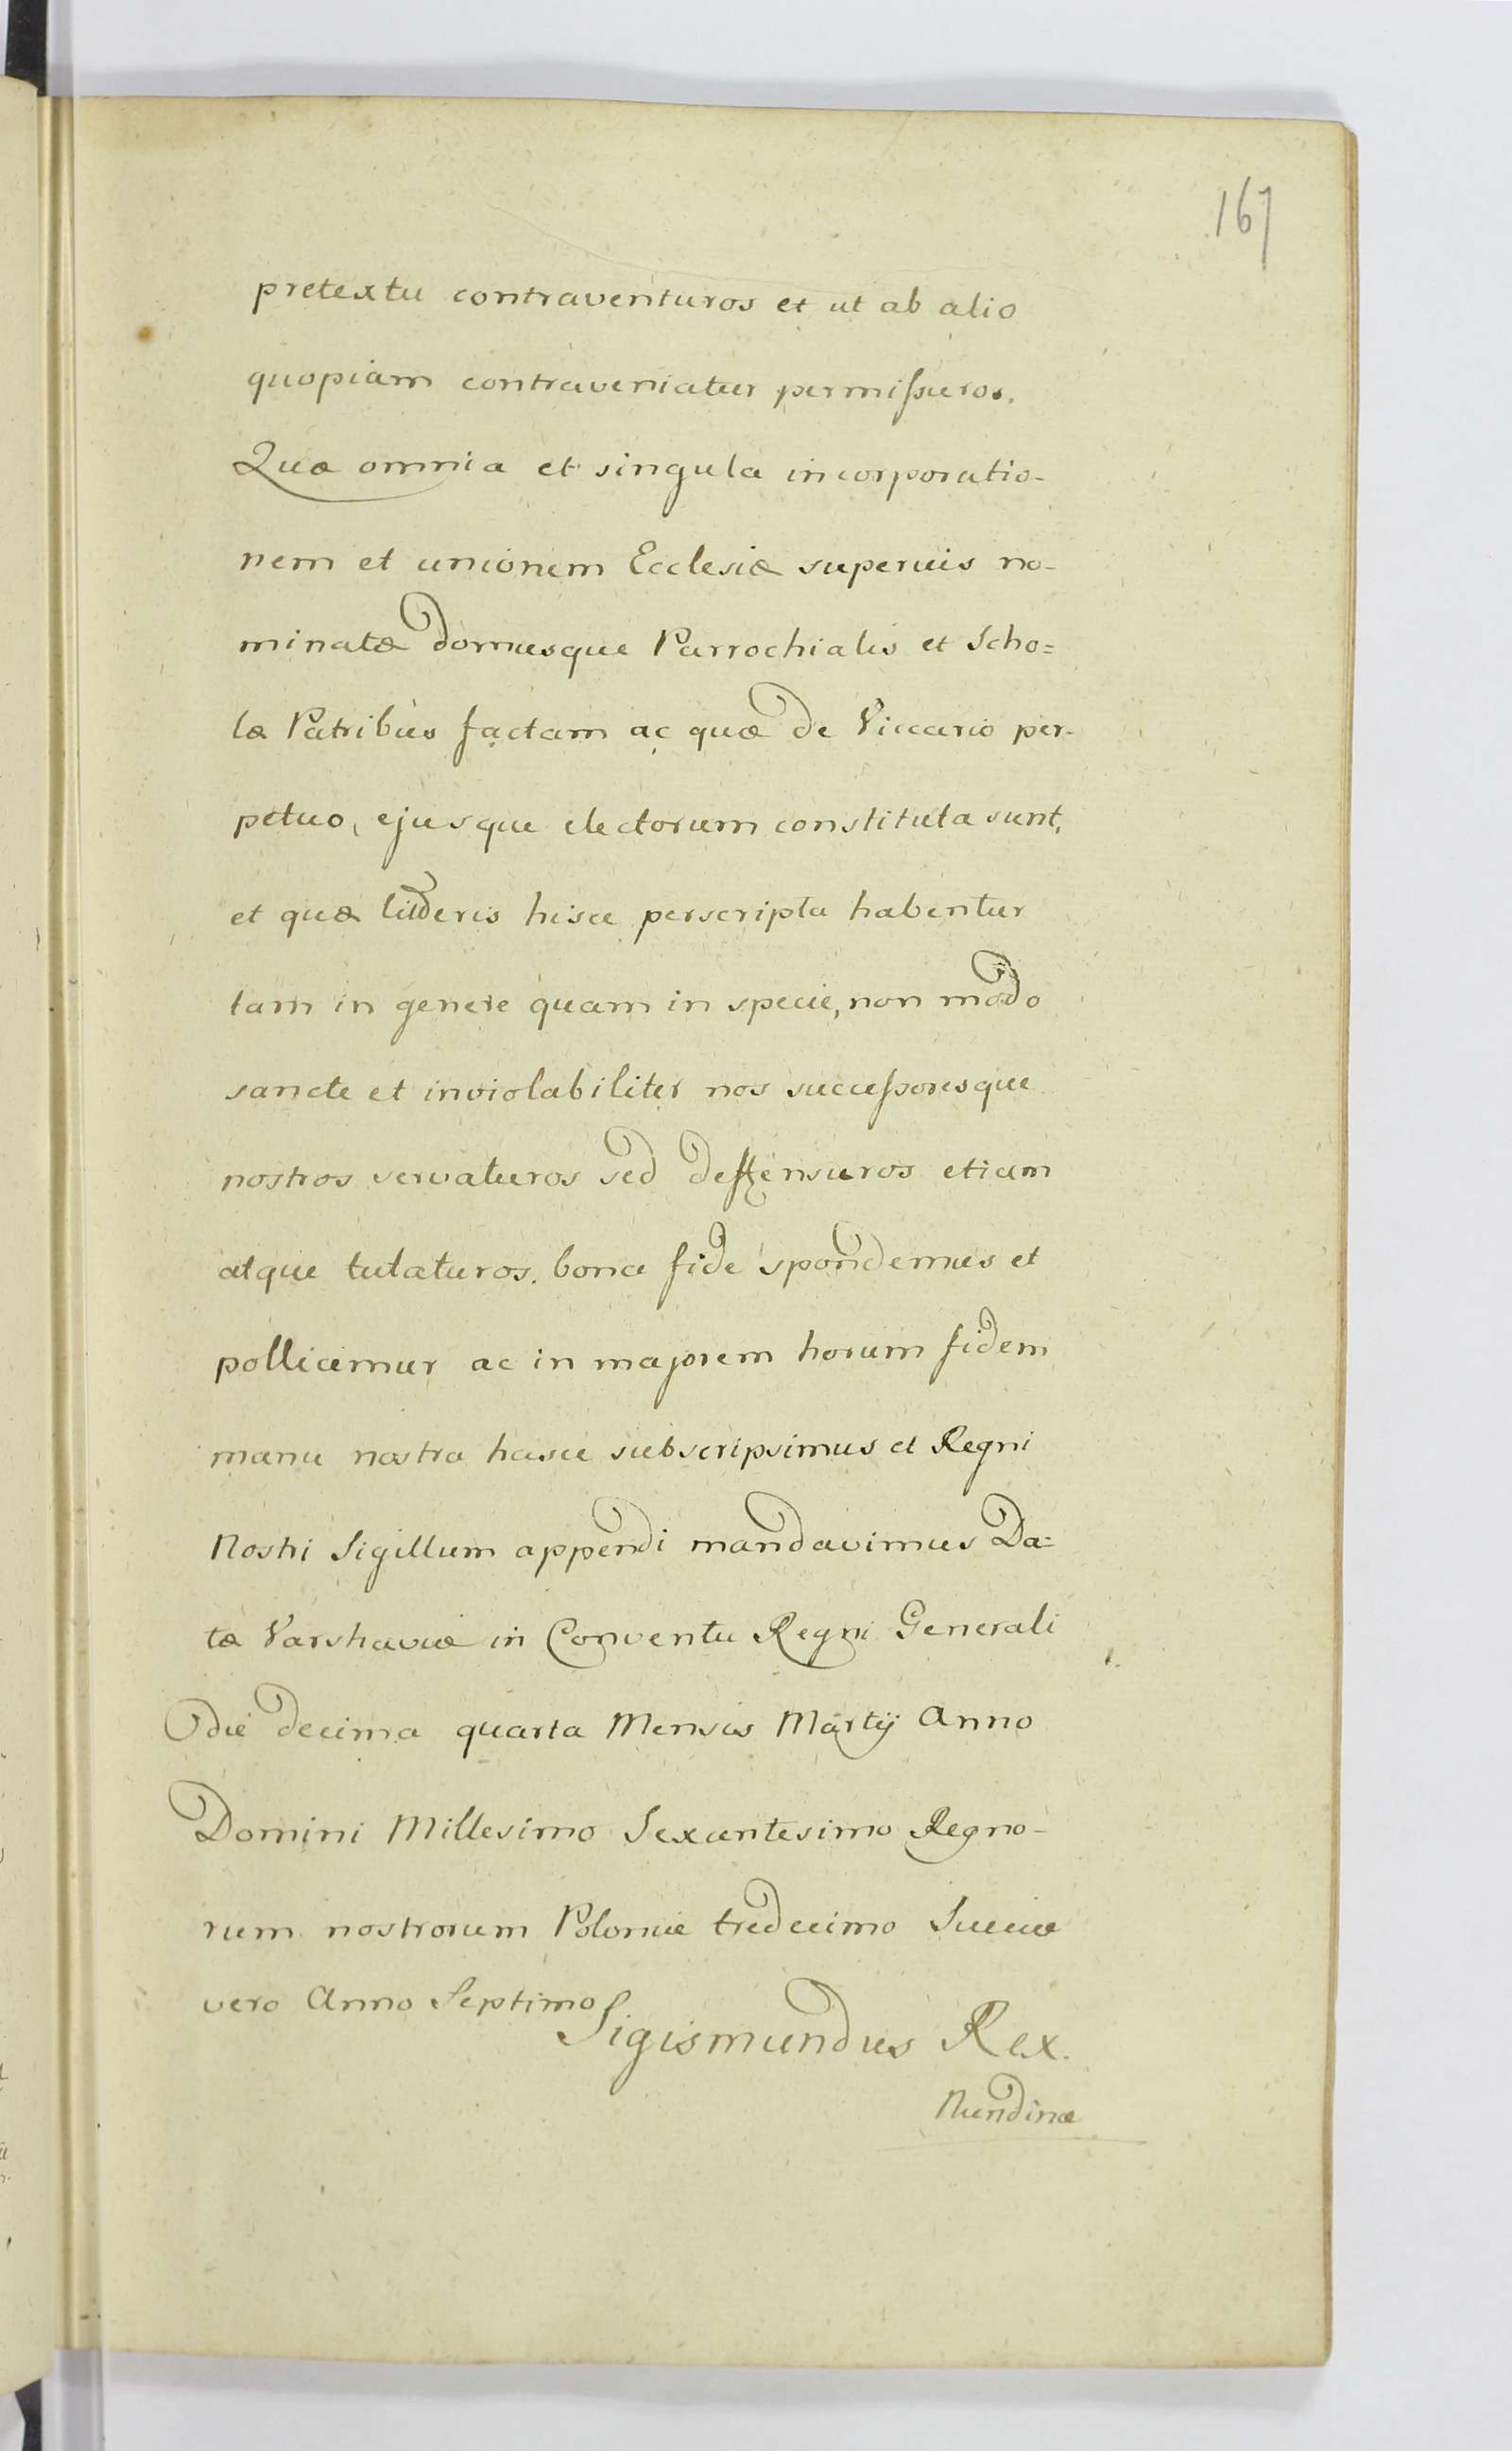 167
pretextu contraventuros et ut ab alio
quopiam contraveniatur permissuros.
Quæ omnia et singula incorporatio-
nem et unionem Ecclesiæ superuis no-
minatæ domusque Parrochialis et Scho=
læ Patribus factam ac quæ de Viccario per-
petuo, ejusque electorum constituta sunt,
et quæ litteris hisce perscripta habentur
tam in genere quam in specie, non modo
sancte et inviolabiliter nos successoresque
nostros servaturos sed deffensuros etiam
atque tutaturos. bona fide spondemus et
pollicemur ac in majorem horum fidem
manu nostra hasce subscripsimus et Regni
Nostri Sigillum appendi mandavimus Da=
tæ Varshaviæ in Conventu Regni Generali
die decima quarta Mensis Martij Anno
Domini Millesimo Sexcentesimo Regno-
rum nostrorum Poloniæ tredecimo Sueciæ
vero Anno Septimo
Sigismundus Rex.
Nundinæ